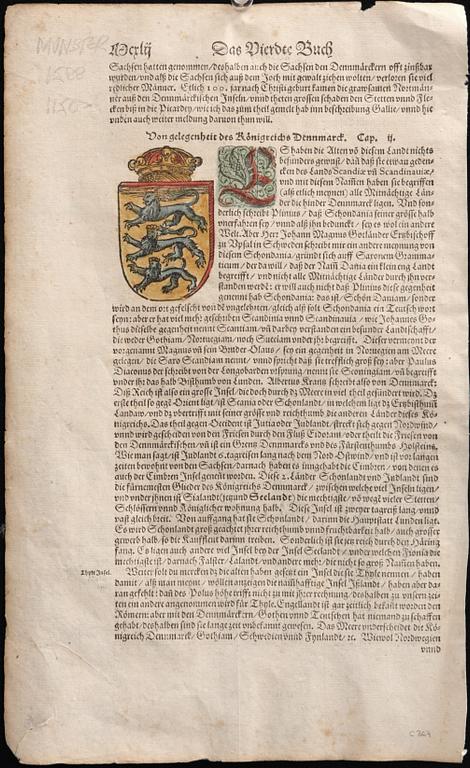 MUNSTER
1588
Mcxlij Das Vierdte Buch
Sachsen hatten genommen / deßhalben auch die Sachsen den Dennmärckern offt zinßbar
wurden / vnd als die Sachsen sich auß dem Joch mit gewalt ziehen wolten / verloren sie viel
redlicher Männer. Etlich 100. jar nach Christi geburt kamen die grawsamen Nortmän-
ner auß den Dennmärckischen Inseln / vnnd theten grossen schaden den Stetten vnnd Fle-
cken biß in die Picardey / wie ich das zum theil gemelt hab inn beschreibung Gallie / vnnd hie
vnden auch weiter meldung daruon thun will.
Von gelegenheit des Königreichs Dennmarck. Cap. ij.
ES haben die Alten võ diesem Landt nichts
besonders gewust / dañ daß sie etwan geden-
cken des Lands Scandiæ vñ Scandinauiæ /
vnd mit diesem Nammen haben sie begriffen
(als etlich meynen) alle Mitnächtige Län-
der die hinder Dennmarck ligen. Vnd son-
derlich schreibt Plinius / daß Schondania seiner grösse halb
vnerfahren sey / vnnd als jhn beduncke / sey es wol ein ander
Welt. Aber Herr Johann Magnus Gotländer Ertzbischoff
zu Vpsal in Schweden schreibt mit ein andere meynung von
diesem Schondania / gründt sich auff Saxonem Gramma-
ticum / der da will / daß der Nam Dania ein klein eng Landt
begreifft / vnd nicht alle Mitnächtige Länder durch jhn ver-
standen werde: er will auch nicht daß Plinius diese gegenheit
genennt hab Schondania: das ist / Schön Daniam / sonder
wird an dem ort gefelscht von dẽ vngelehrten / gleich als solt Schondania ein Teutsch wort
seyn: aber er hat viel mehr geschriben Scandinia vnnd Scandinauia / wie Johannes Go-
thus dieselbe gegenheit nennt Scantiam / vñ darbey verstanden ein besunder Landschafft /
die weder Gothiam / Noruegiam / noch Suetiam vnder jhr begreifft. Dieser vermeynt der
vorgenannt Magnus vñ sein Bruder Olaus / sey ein gegenheit in Noruegien am Meere
gelegen / die Saxo Scandiam nennt / vnnd spricht daß sie trefflich groß sey: aber Paulus
Diaconus der schreibt von der Longobarden vrsprung / nennt sie Sconingiam / vñ begreifft
vnder jhr das halb Bisthumb von Lunden. Albertus Krantz schreibt also von Dennmarck:
Diß Reich ist also ein grosse Insel / die doch durch dz Meere in viel theil gesündert wird. Dz
erste theil so gegẽ Orient ligt / ist Scania oder Schonlandt / in welchem ligt dz Ertzbisthũb
Landaw / vnd dz vbertrifft mit seiner grösse vnd reichthumb die anderen Länder dieses Kö-
nigreichs. Das theil gegen Occident ist Jutia oder Judland / streckt sich gegen Nordwind /
vnnd wirt gescheiden von den Friesen durch den Fluß Eydoram / oder theilt die Friesen von
den Dennmärckischen / vñ ist ein Grentz Dennmarcks vnd des Fürstenthumbs Holsteins.
Wie man sagt / ist Judlandt 6. tagreisen lang nach dem Nord Ostwind / vnd ist vor langen
zeiten bewohnt von den Sachsen / darnach haben es inngehabt die Cimbern / von denen es
auch der Cimbern Insel genent worden. Diese 2. Länder Schonlandt vnd Judlandt sind
die fürnemsten Glieder des Königreichs Dennmarck / zwischen welche viel Inseln ligen /
vnd vnder jhnen ist Sialandt (jetzund Seelandt) die mechtigste / võ wegẽ vieler Stetten /
Schlössern vnnd Königlicher wohnung halb. Diese Insel ist zweyer tagreiß lang / vnnd
vast gleich breit. Von auffgang hat sie Schonlandt / darinn die Hauptstatt Lunden ligt.
Es wird Schonlandt groß geachtet jhrer reichthumb vnnd fruchtbarkeit halb / auch grosser
gewerb halb / so die Kauffleut darinn treiben. Sonderlich ist sie jetz reich durch den Häring
fang. Es ligen auch andere viel Insel bey der Insel Seelandt / vnder welchen Fionia die
mechtigste ist / darnach Falster / Lalandt / vnd andere mehr / die nicht so groß Nammen haben.
Thyle Insel. Weiter solt du mercken dz die alten haben gesetzt ein Insel die sie Thyle nennen / haben
damit / als man meynt / wöllen anzeigen die namhafftige Insel Ißlandt / haben aber das
ran gefehlt: dañ des Polus höhe trifft nicht zu mit jhrer rechnung / deßhalben zu vnsern zei-
ten ein andere angenommen wird für Thyle. Engellandt ist gar zeitlich bekañt worden den
Römern: aber mit den Dennmärckern / Gothen vnnd Teutschen hat niemand zu schaffen
gehabt / deßhalben sind sie lange zeit vnbekannt gewesen. Das Meere vnderscheidet die Kö-
nigreich Dennmarck / Gothiam / Schweden vnnd Fynlandt / ꝛc. Wiewol Nordwegien
vnnd